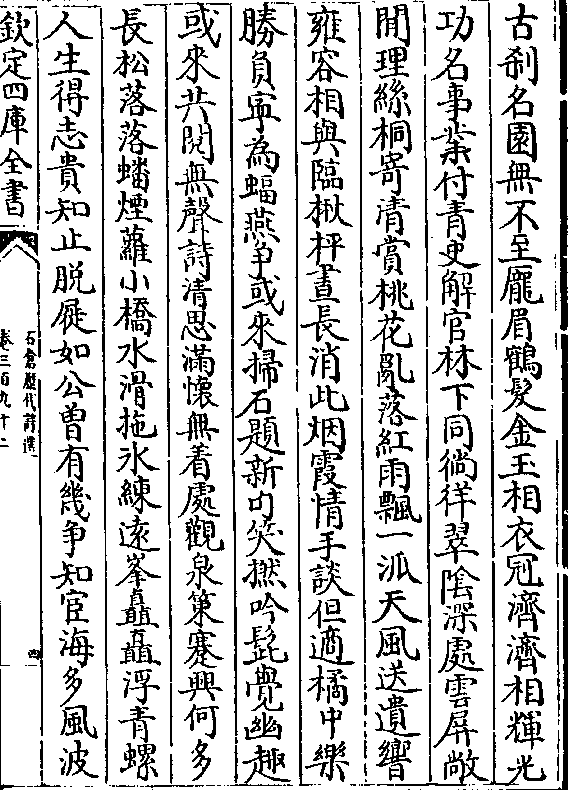 古刹名園無不至龎眉鶴髮金玉相衣冠濟濟相輝光
功名事業付青史解官林下同徜徉翠陰深處雲屏敞
閒理絲桐寄清賞桃花亂落紅雨飄一派天風送遺響
雍容相與臨楸枰晝長消此烟霞情手談但適橘中樂
勝負寜為蝠燕争或來掃石題新句笑撚吟髭覺幽趣
或來共閲無聲詩清思滿懷無着處觀泉策蹇興何多
長松落落蟠煙蘿小橋水滑拖氷練遠峯矗矗浮青螺
人生得志貴知止脱屣如公曽有幾争知宦海多風波
欽定四庫全書
石倉歷代詩選
卷三百九十二
四